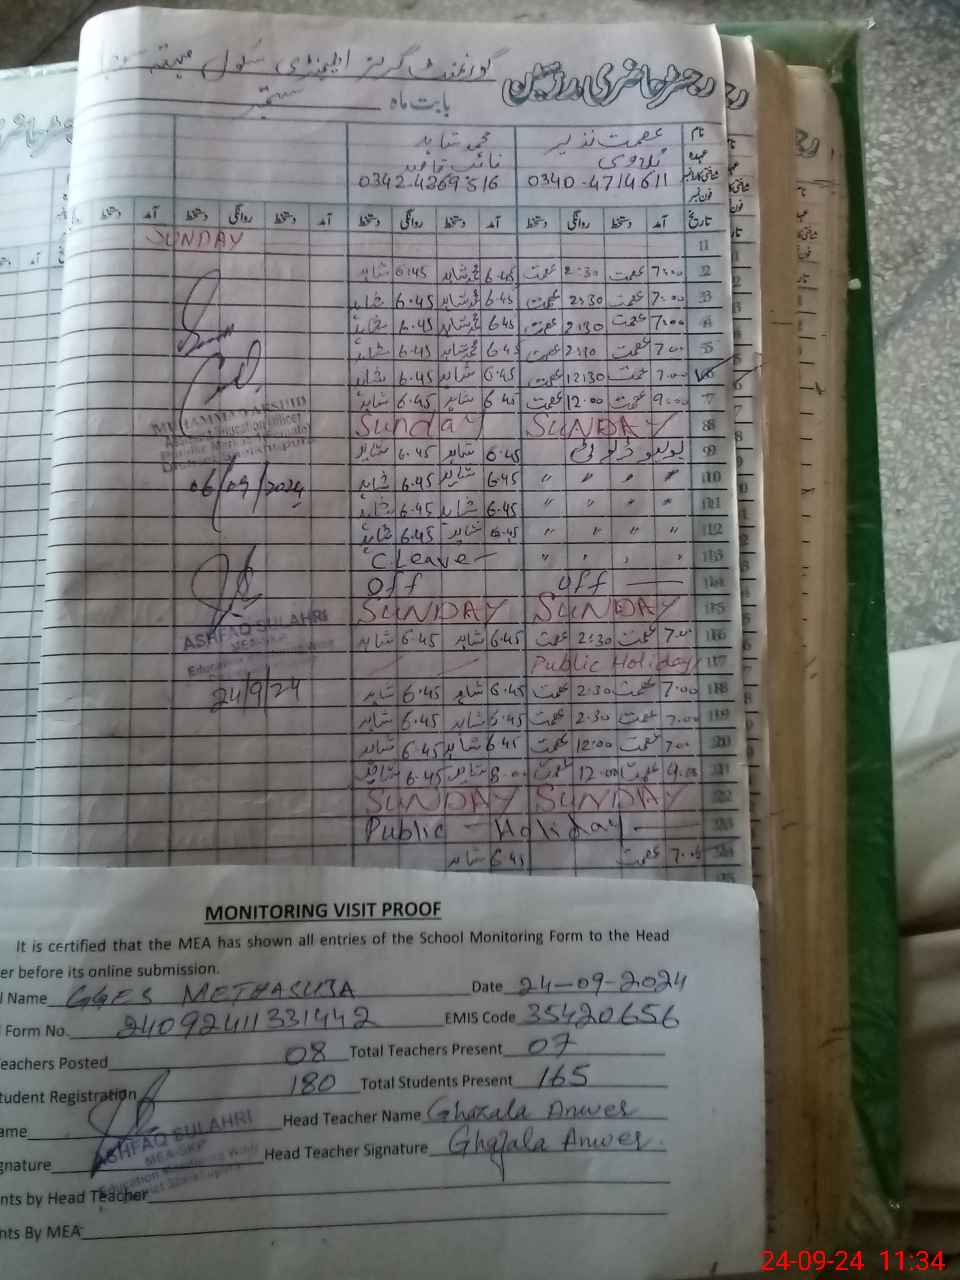 رجسٹر حاضری مدرسین گورنمنٹ گرلز ایلیمنٹری سکول
بابت ماہ ستمبر
نام عصمت نذیر محمد شاہد
عہدہ نائب قاصد
فون نمبر 0340-4714611 0342-4269516
تاریخ آمد دستخط روانگی دستخط آمد دستخط روانگی دستخط آمد دستخط روانگی دستخط آمد دستخط
SUNDAY
2 7:00 عصمت 2:30 عصمت 6.45 محمد شاہد 6.45 شاہد
3 7:00 عصمت 2:30 عصمت 6.45 محمد شاہد 6.45 شاہد
4 7:00 عصمت 2:30 عصمت 6.45 محمد شاہد 6.45 شاہد
5 7.00 عصمت 2:30 عصمت 6.45 محمد شاہد 6.45 شاہد
6 7.00 عصمت 12:30 عصمت 6.45 شاہد 6.45 شاہد
7 9:00 عصمت 12.00 عصمت 6.45 شاہد 6.45 شاہد
8 SUNDAY Sunday
9 پولیو ڈیوٹی 6.45 شاہد 6.45 شاہد
10 " " " " 6.45 شاہد 6.45 شاہد
11 " " " " 6.45 شاہد 6.45 شاہد
12 " " " " 6.45 شاہد 6.45 شاہد
13 " " " " C Leave
14 off off
15 SUNDAY SUNDAY
16 7.00 عصمت 2:30 عصمت 6.45 شاہد 6.45 شاہد
17 Public Holiday
18 7.00 عصمت 2:30 عصمت 6.45 شاہد 6.45 شاہد
19 7.00 عصمت 2:30 عصمت 6.45 شاہد 6.45 شاہد
20 7.00 عصمت 12:00 عصمت 6.45 شاہد 6.45 شاہد
21 9.00 عصمت 12.00 عصمت 8.00 شاہد 6.45 شاہد
22 SUNDAY SUNDAY
23 Public - Holiday
24 7.00 عصمت 6.45 شاہد
MUHAMMAD ARSHID
Assistant Education Officer
06/09/2024
ASHFAQ SULAHRI
MEA-SKP
24/9/24
MONITORING VISIT PROOF
It is certified that the MEA has shown all entries of the School Monitoring Form to the Head
er before its online submission.
l Name GGES METHASUJA Date 24-09-2024
Form No. 24092411331442 EMIS Code 35420656
eachers Posted 08 Total Teachers Present 07
tudent Registration 180 Total Students Present 165
ame Head Teacher Name Ghazala Anwer
gnature Head Teacher Signature Ghazala Anwer
ASHFAQ SULAHRI
MEA-SKP
Education Monitoring Wing
nts by Head Teacher
nts By MEA:
24-09-24 11:34